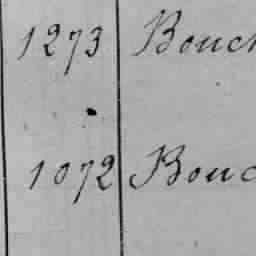 1273 Bouch
1072 Bouc